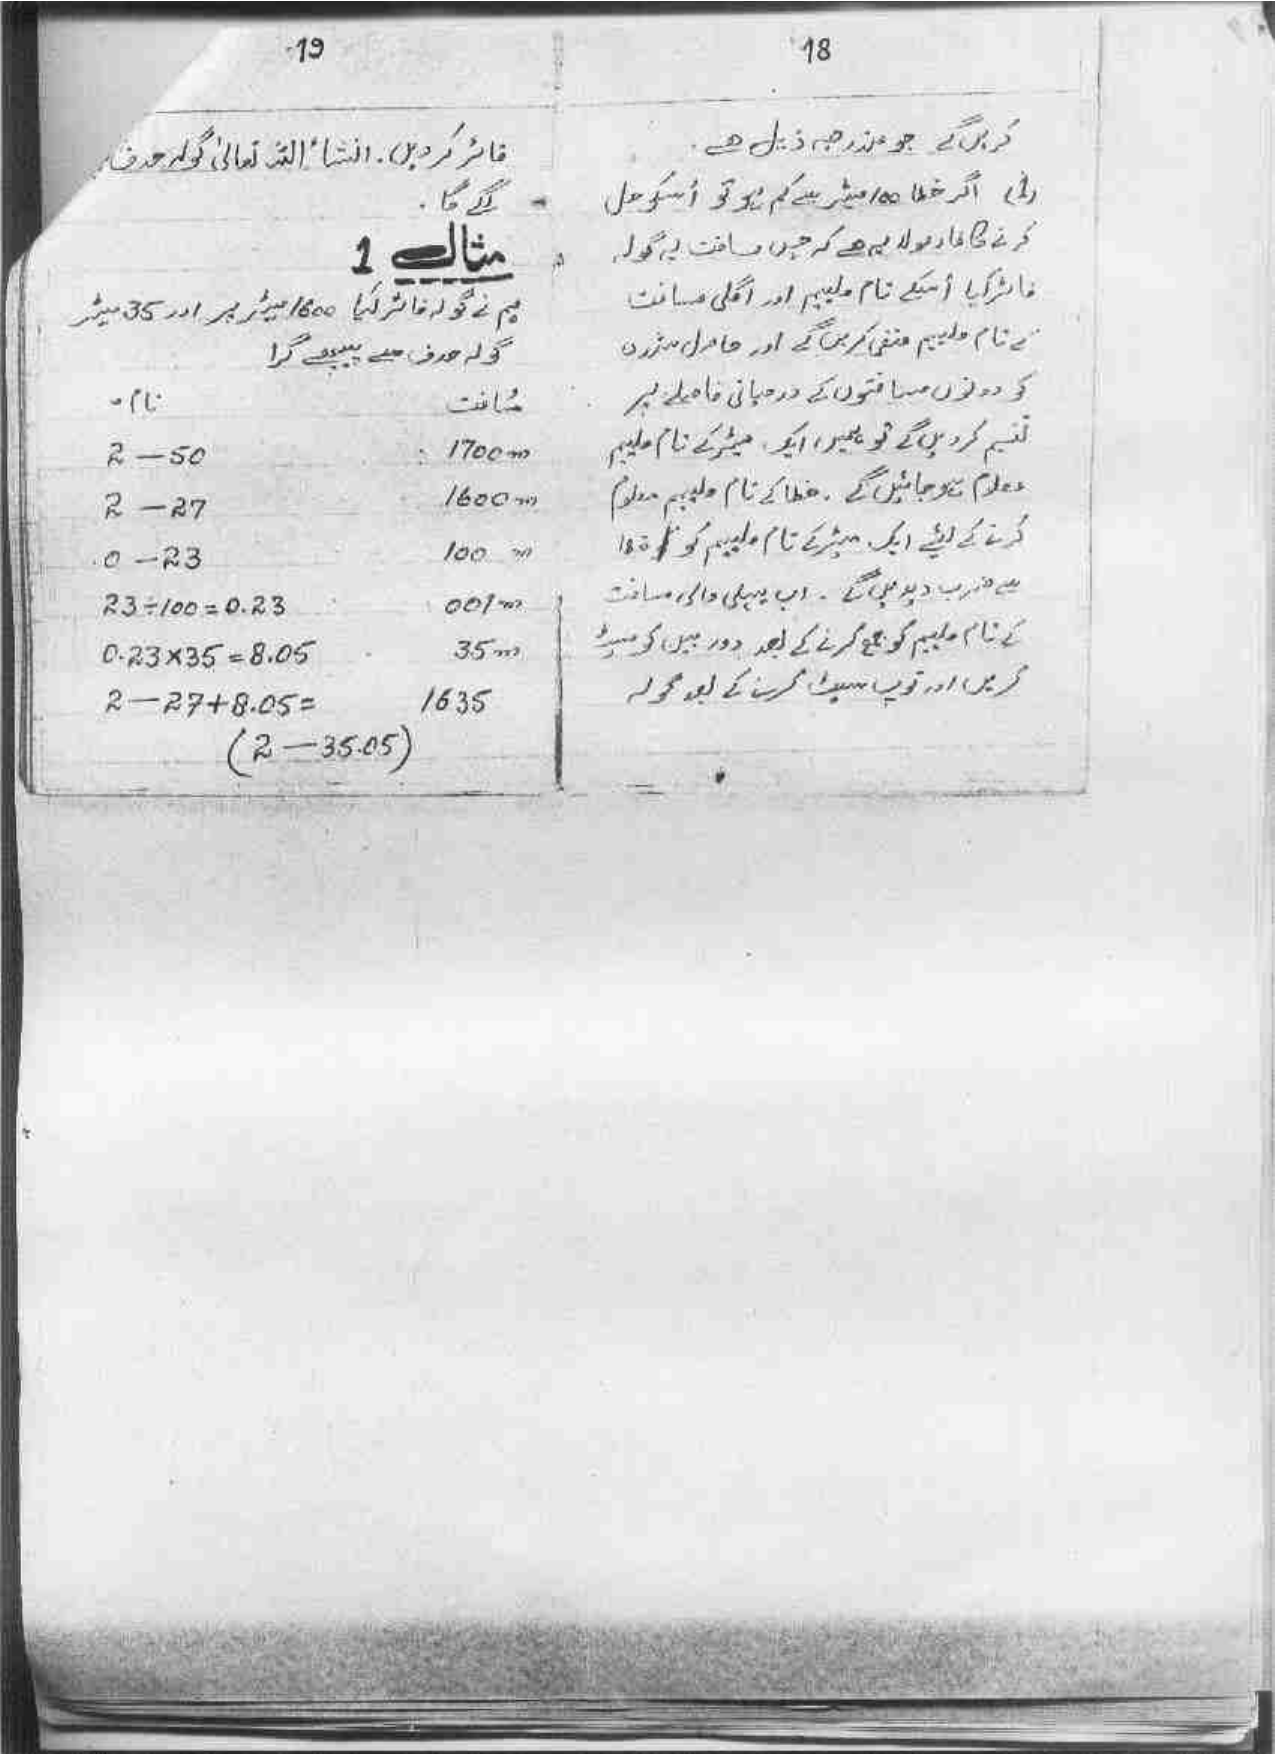 18
کریں گے جو مندرجہ ذیل ہے۔
اگر خطا 100 میٹر سے کم ہو تو اُسکو حل
کرنے کا فارمولہ یہ ہے کہ جس مسافت پہ گولہ
فائر کیا اُسکے تام ملییم اور اگلی مسافت
کے تام ملییم منفی کریں گے اور حاصل شدہ
کو دونوں مسافتوں کے درمیانی فاصلے پر
تقسیم کر دیں گے تو ہمیں ایک میٹر کے تام ملییم
معلوم ہو جائیں گے۔ خطا کے تام ملییم معلوم
کرنے کے لیئے ایک میٹر کے تام ملییم کو خطا
سے ضرب دیں گے۔ اب پہلی والی مسافت
کے تام ملییم کو جمع کرنے کے بعد دوربین کو سیٹ
کریں اور توپ سیٹ کرنے کے بعد گولہ
19
فائر کر دیں۔ انشاءاللہ تعالیٰ گولہ حدف
لگے گا۔
مثال 1
ہم نے گولہ فائر کیا 1600 میٹر پر اور 35 میٹر
گولہ حدف سے پیچھے گرا
مُسافت تام
1700m 2—50
1600m 2—27
100 m 0—23
001m 23÷100=0.23
35m 0.23×35=8.05
1635 2—27+8.05=
(2—35.05)